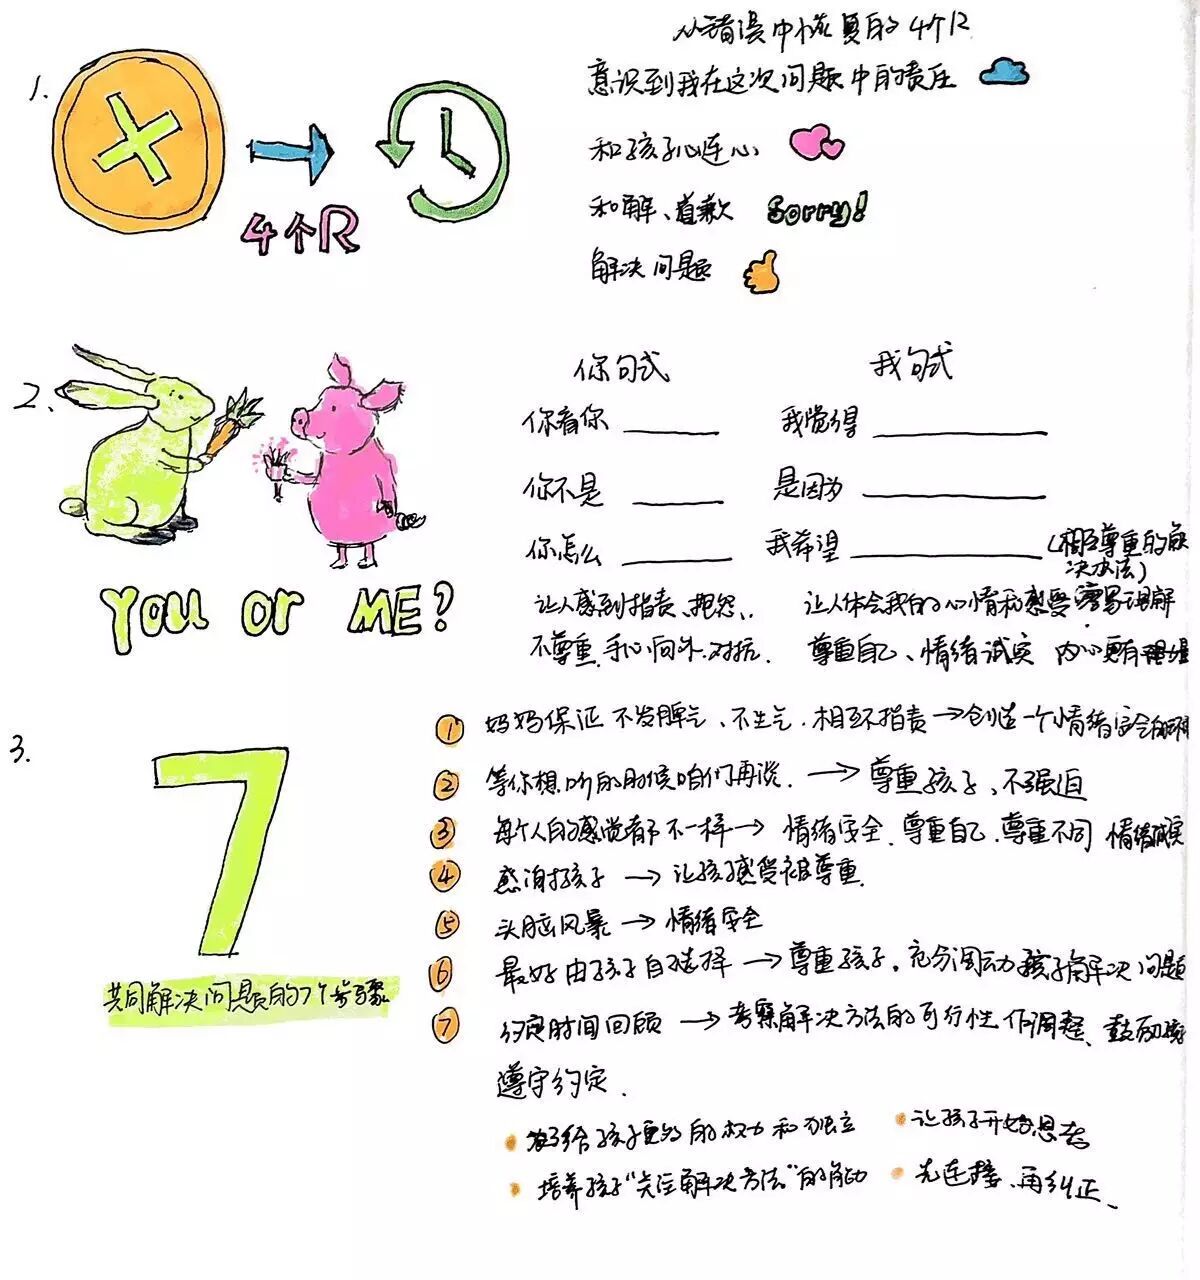 从错误中恢复的4个R
1.
4个R
意识到我在这次问题中的责任
和孩子心连心
和解、道歉 Sorry!
解决问题
2.
YOU or ME?
你句式 我句式
你看你 我觉得
你不是 是因为
你怎么 我希望 (相互尊重的解
决办法)
让人感到指责、抱怨、 让人体会我的心情和感受 容易理解
不尊重、手心向外、对抗. 尊重自己、情绪诚实 内心更有
3.
7
共同解决问题的7个步骤
① 妈妈保证不发脾气、不生气.相互不指责→创造一个情绪安全的环
② 等你想听的时候咱们再谈.→尊重孩子、不强迫
③ 每个人的感觉都不一样→情绪安全.尊重自己.尊重不同 情绪诚实
④ 感谢孩子→让孩子感受被尊重.
⑤ 头脑风暴→情绪安全
⑥ 最好由孩子自己选择→尊重孩子,充分调动孩子解决问题
⑦ 约定时间回顾→考察解决方法的可行性作调整、鼓励孩
遵守约定.
给孩子更多的权力和独立 让孩子开始思考
培养孩子"关注解决方法"的能力 先连接、再纠正、